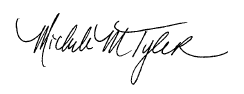 Michele M Tyler